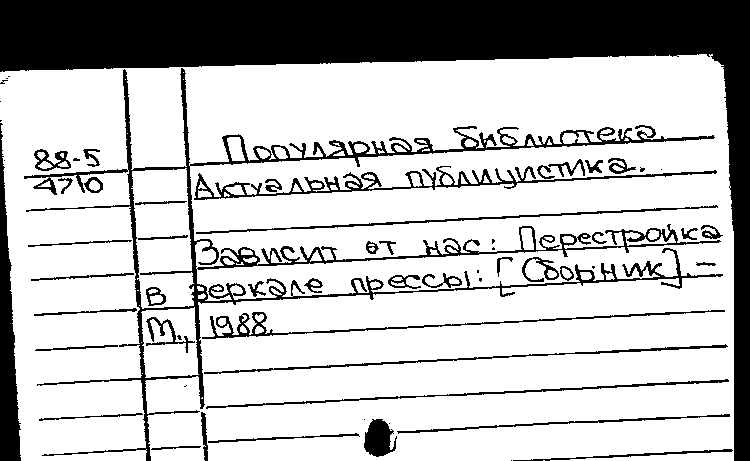 Популярная библиотека.
88-5
4710
Актуальная публицистика.
Зависит от нас: Перестройка
в зеркале прессы: [Сборник]. –
М., 1988.